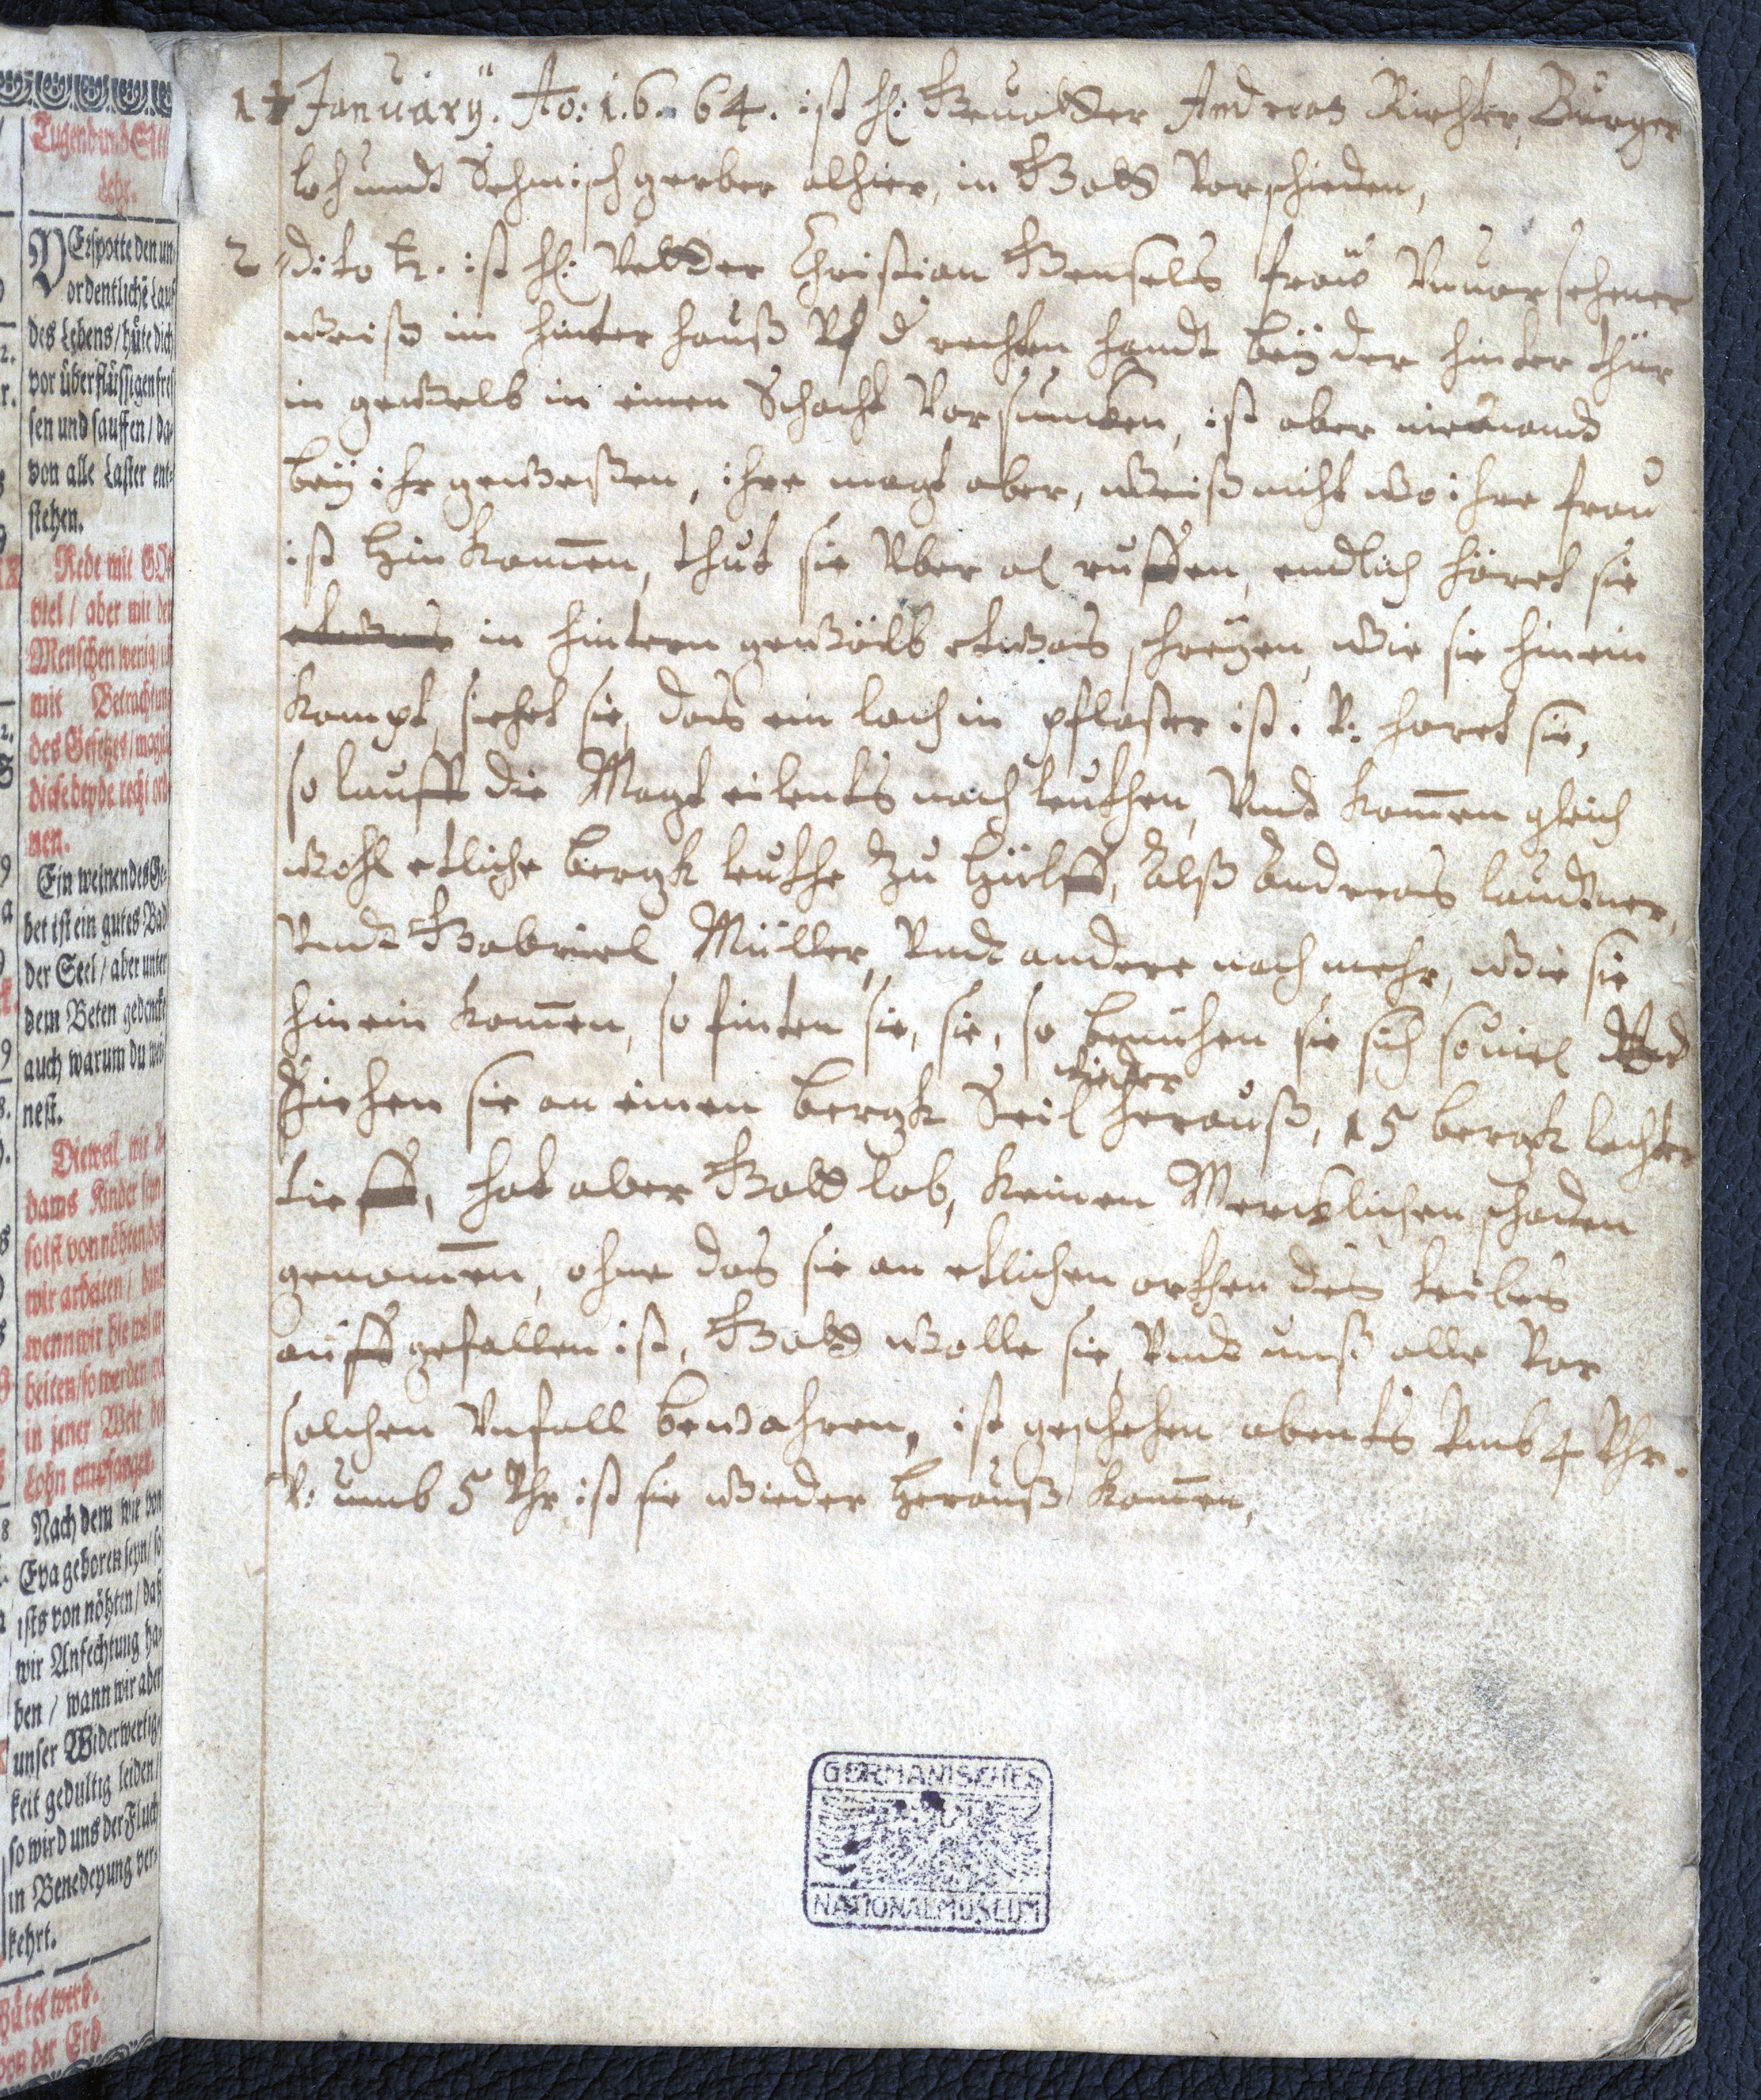 Tugend und Sitten
Lehr.
VErspotte den un-
ordentlichē Lauf
des Lebens / hüte dich
vor überflüssigen fres-
sen und sauffen / da-
von alle Laster ent-
stehen.
Rede mit GOtt
viel / aber mit den
Menschen wenig /
mit Betrachtung
des Gesetzes /
diese beyde recht
nen.
Ein weinendes Ge-
bet ist ein gutes Bad
der Seel / aber unter
dem Beten gedencke
auch warum du wei-
nest.
Dieweil wir A-
dams Kinder seyn /
so ist von nöhten / daß
wir arbeiten / dann
wenn wir hie wol ar-
beiten / so werden wir
in jener Welt den
Lohn empfangen.
Nach dem wir von
Eva geboren seyn / so
ists von nöhten / daß
wir Anfechtung ha-
ben / wann wir aber
unser Widerwertig-
keit gedultig leiden /
so wird uns der Fluch
in Benedeyung ver-
kehrt.
von der Erd.
1 January. Ao: 1.6.64. ist H: Gevatter Andreas Richter, Burger
Loh undt Sehmischgerber alhier, in Gott Vorschieden,
2 dito ist H: Vetter Christian Gensels frau Unvorsehener
weiß im hinter hauß d rechten handt beÿ der hinter thür
in gewelb in einen Schacht Vorsuncken, ist aber niemandt
beÿ ihr geweßen, ihre magt aber, weiß nicht wo ihre frau
ist hin kom̄en, thut sie Uber al ruffen, endlich höret sie
etwas in hintern gewölb etwas schreÿen, wie sie hinein
kompt, siehet sie, das ein loch in pflaster ist. V: horet sie,
so laufft die Magt eilents nach leuthen, Undt kom̄en gleich
wohl etliche bergk leuthe zu hülff, Alß Andreas Laudtner,
Undt Gabriel Müller, Undt andere noch mehr, wie sie
hinein kom̄en, so finten sie, sie, so bemühen sie sich soviel Und
wieder
Ziehen sie an einen bergk Seil herauß, 15 bergk lachter
tieff, hat aber Gott lob, keinen Mercklichen schaden
genom̄en, ohne das sie an etlichen orthen des leibes
auff gefallen ist, Gott wolle sie Undt unß alle Vor
solchen Unfall bewahren, ist geschehen abents Umb 4 Uhr.
V: umb 5 Uhr ist sie wieder herauß kom̄en,
GERMANISCHES
NATIONALMUSEUM